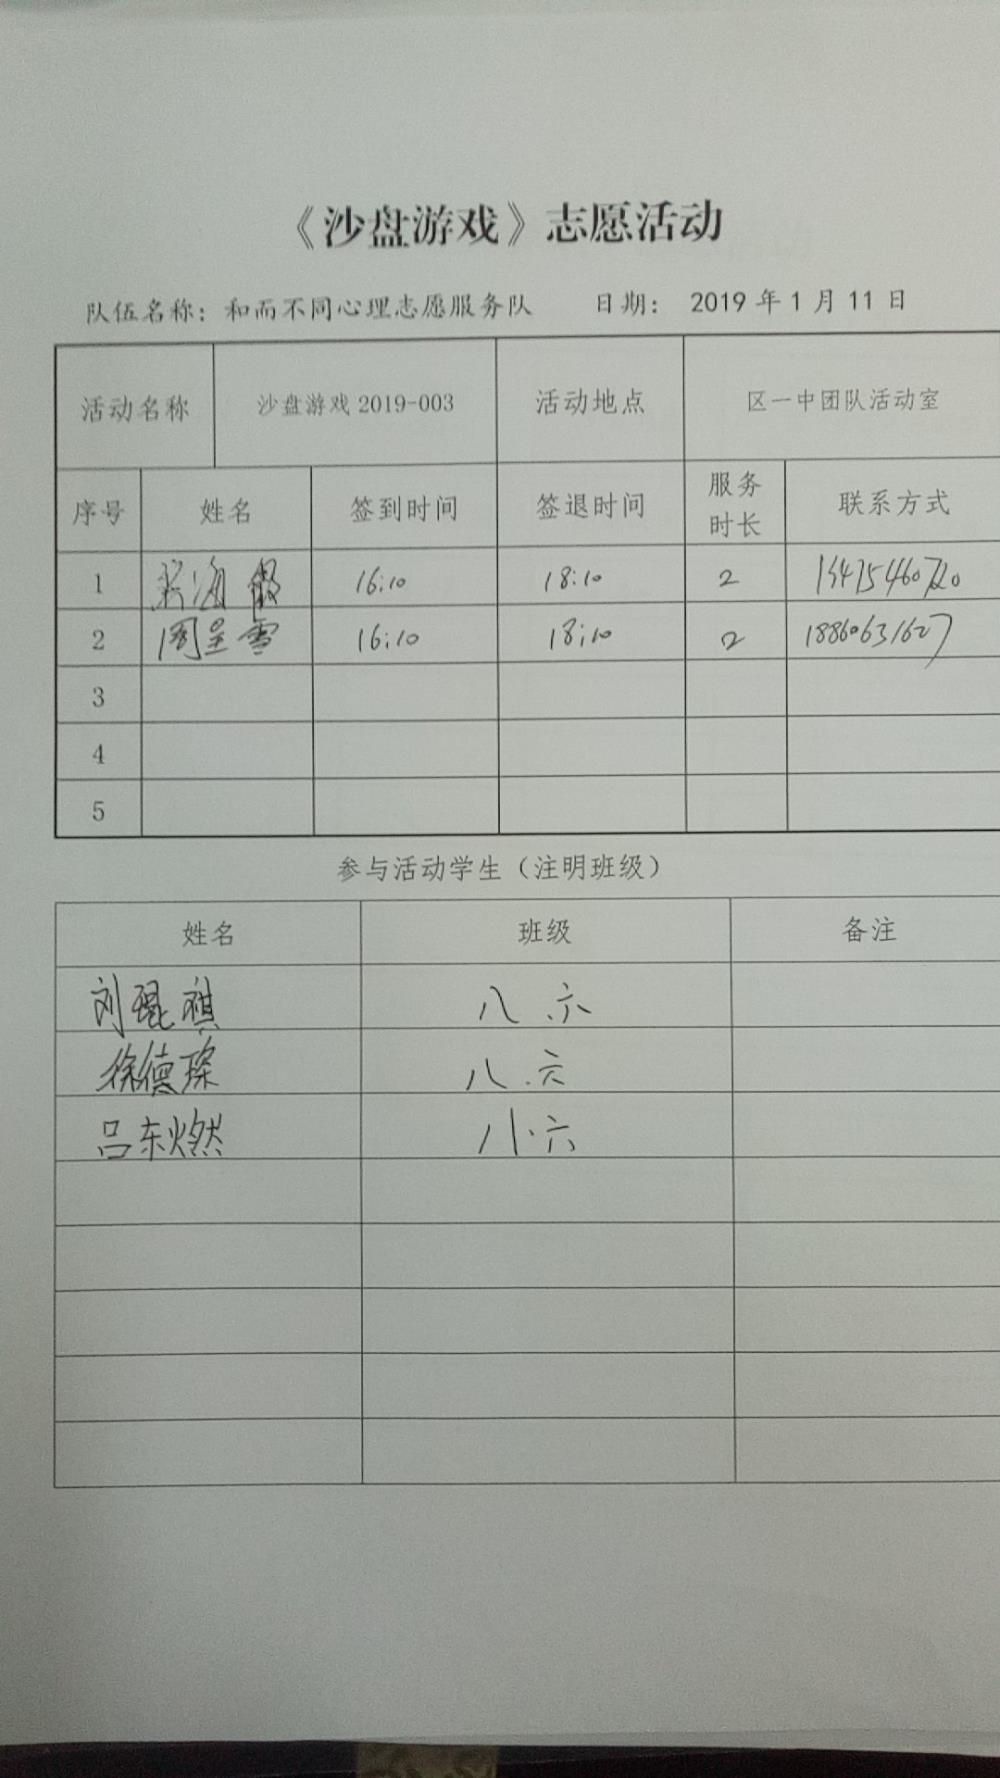 《沙盘游戏》志愿活动
队伍名称：和而不同心理志愿服务队 日期： 2019 年 1 月 11 日
活动名称 沙盘游戏 2019-003 活动地点 区一中团队活动室
序号 姓名 签到时间 签退时间 服务时长 联系方式
1 16:10 18:10 2
2 周呈雪 16:10 18:10 2 18860631627
3
4
5
参与活动学生（注明班级）
姓名 班级 备注
刘琨祺 八.六
徐德璨 八.六
吕东燃 八.六